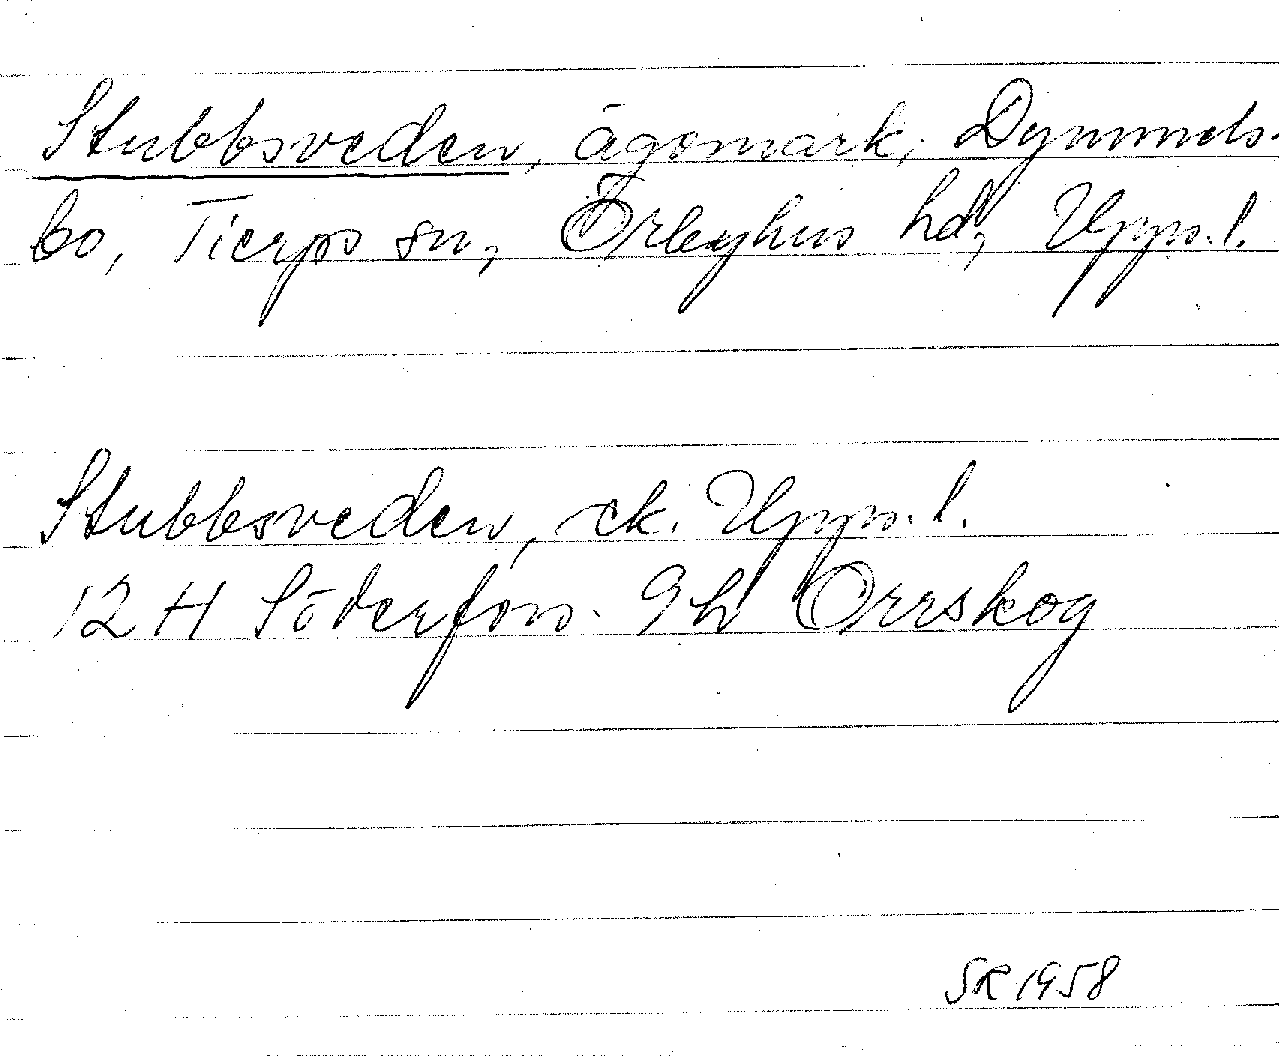 Stubbsveden, ägomark, Dymmels-
bo, Tierps sn, Örbyhus hd, Uppl.
Stubbsveden, ek. Uppl.
12 H Söderfors. 9h Orrskog
SR 1958